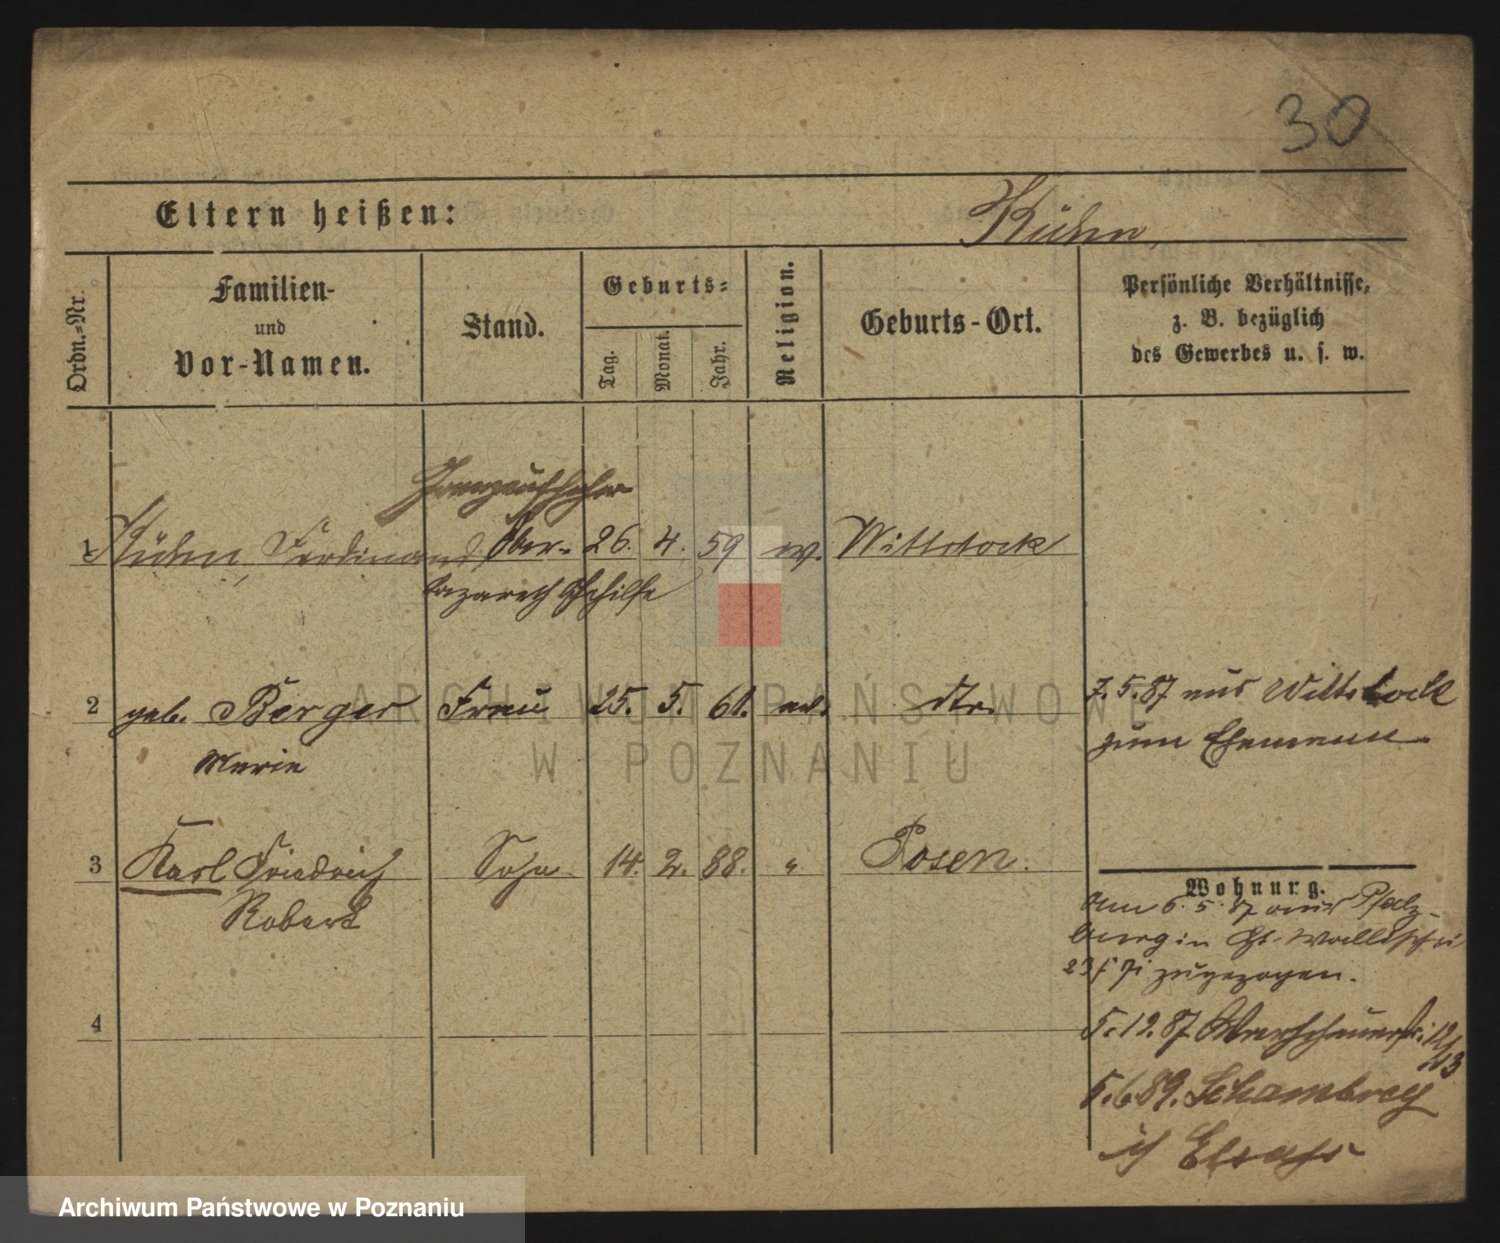 30
Eltern heißen:
Kühn,
Ordn.-Nr.
Familien-
und
Vor-Namen.
Stand.
Geburts-
Tag.
Monat.
Jahr.
Religion.
Geburts-Ort.
Persönliche Verhältnisse,
z. B. bezüglich
des Gewerbes u. s. w.
1 Kühn, Ferdinand Ober- 26. 4. 59 ev. Wittstock
Lazareth Gehilfe
2 geb. Berger Frau 25. 5. 61. ev. dto.
Marie
7. 5. 87 aus Wittstock
zum Ehemann
3 Karl Friedrich Sohn 14. 2. 88. " Posen.
Robert
Wohnung.
Am 6. 5. 87 aus Pfalz-
burg in St. Wallischei
zugezogen.
4
5.12.87 Warschauerstr.
5.6.89. Schambrey
i/ Elsass
ARCHIWUM PAŃSTWOWE
W POZNANIU
Archiwum Państwowe w Poznaniu